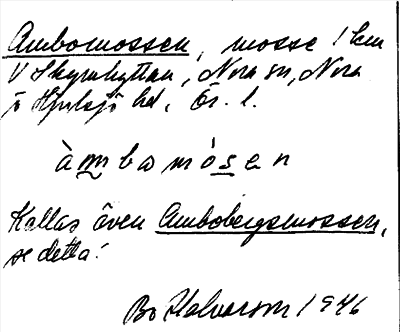 Ambomossen, mosse 1 km
V Skrymhyttan, Nora sn, Nora
o Hjulsjö hd, Ör. l.
àmbamósen
Kallas även Ambobergsmossen,
se detta!
Bo Halvarson 1946